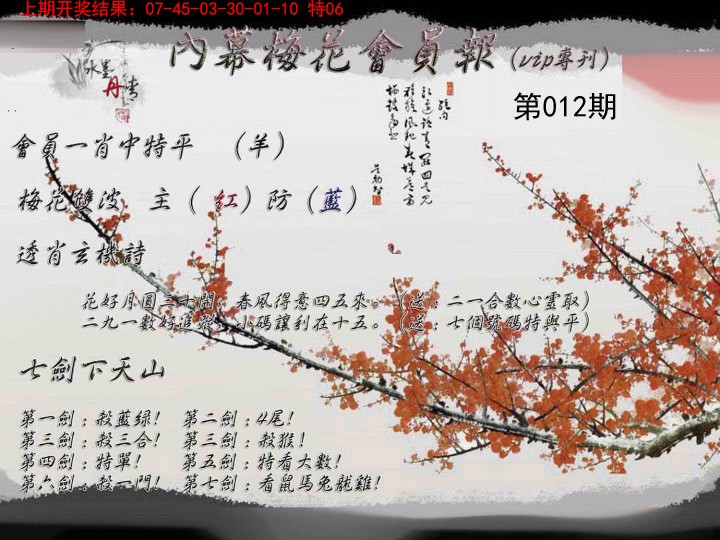 上期开奖结果：07-45-03-30-01-10 特06
內幕梅花會員報（vip專刊）
第012期
水墨
丹青
會員一肖中特平 （羊）
梅花雙波 主（紅）防（藍）
透肖玄機詩
花好月圓三十開，春風得意四五來。（送：二一合數心靈取）
二九一數好追蹤，小碼讓利在十五。（送：七個號碼特與平）
七劍下天山
第一劍：殺藍绿！ 第二劍：4尾！
第三劍：殺三合！ 第三劍：殺猴！
第四劍：特單！ 第五劍：特看大數！
第六劍：殺一門！ 第七劍：看鼠馬兔龍雞！